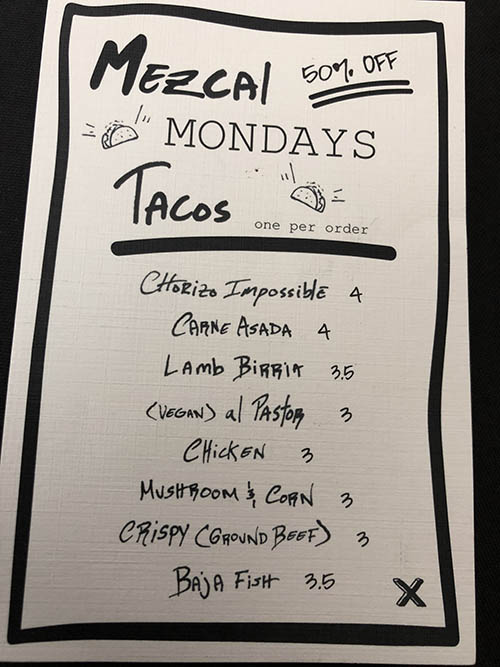 MEZCAl 50% OFF
MONDAYS
TACOS one per order
CHORIZO IMPOSSIBLE 4
CARNE ASADA 4
LAMb BIRRIA 3.5
(VEGAN) al PASTOR 3
CHICKEN 3
MUSHROOM & CORN 3
CRISPY (GROUND BEEF) 3
BAJA FISH 3.5
X